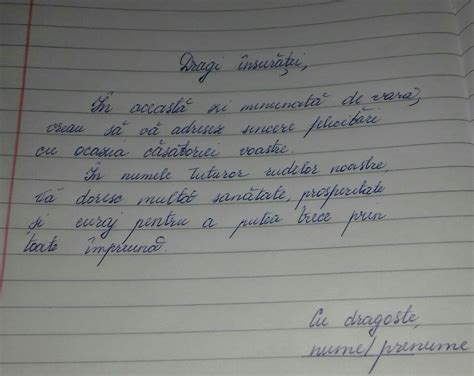 Dragi însurăței,
În această zi minunată de vară,
vreau să vă adresez sincere felicitări
cu ocazia căsătoriei voastre.
În numele tuturor rudelor noastre,
vă doresc multă sanătate, prosperitate
și curaj pentru a putea trece prin
toate împreună.
Cu dragoste,
nume/prenume